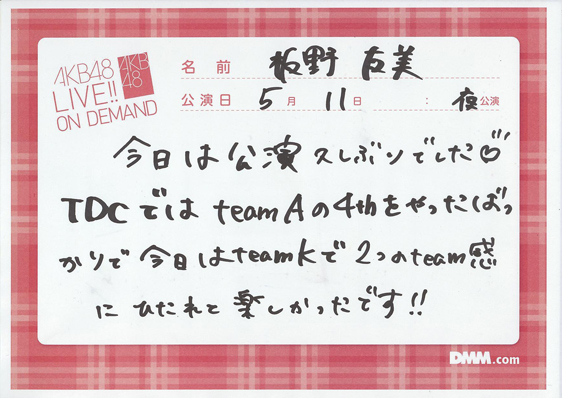 AKB48
LIVE!!
ON DEMAND
AKB
48
名前 板野 友美
公演日 5月 11日 : 夜公演
今日は公演久しぶりでした♡
TDCではteamAの4thをやったばっ
かりで今日はteamKで2つのteam感
にひたれて楽しかったです!!
DMM.com